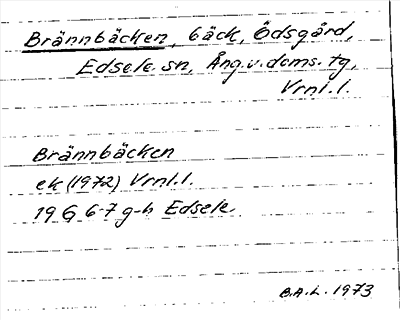 Brännbäcken, bäck, Ödsgård,
Edsele sn, Ång.v.doms.tg,
Vrnl.l.
Brännbäcken
ek (1972) Vrnl.l.
19 G 6-7 g-h Edsele.
B.A.L. 1973